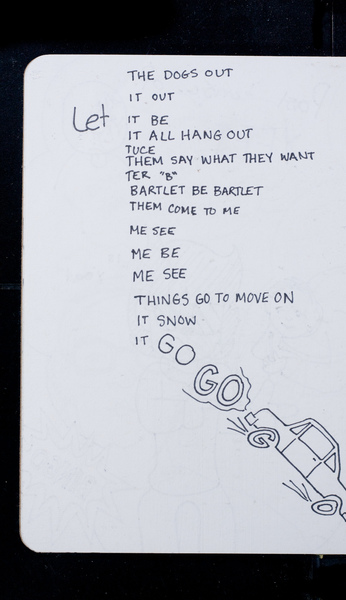 THE DOGS OUT
IT OUT
Let IT BE
IT ALL HANG OUT
TUCE
THEM SAY WHAT THEY WANT
TER "B"
BARTLET BE BARTLET
THEM COME TO ME
ME SEE
ME BE
ME SEE
THINGS GO TO MOVE ON
IT SNOW
IT GO
GO